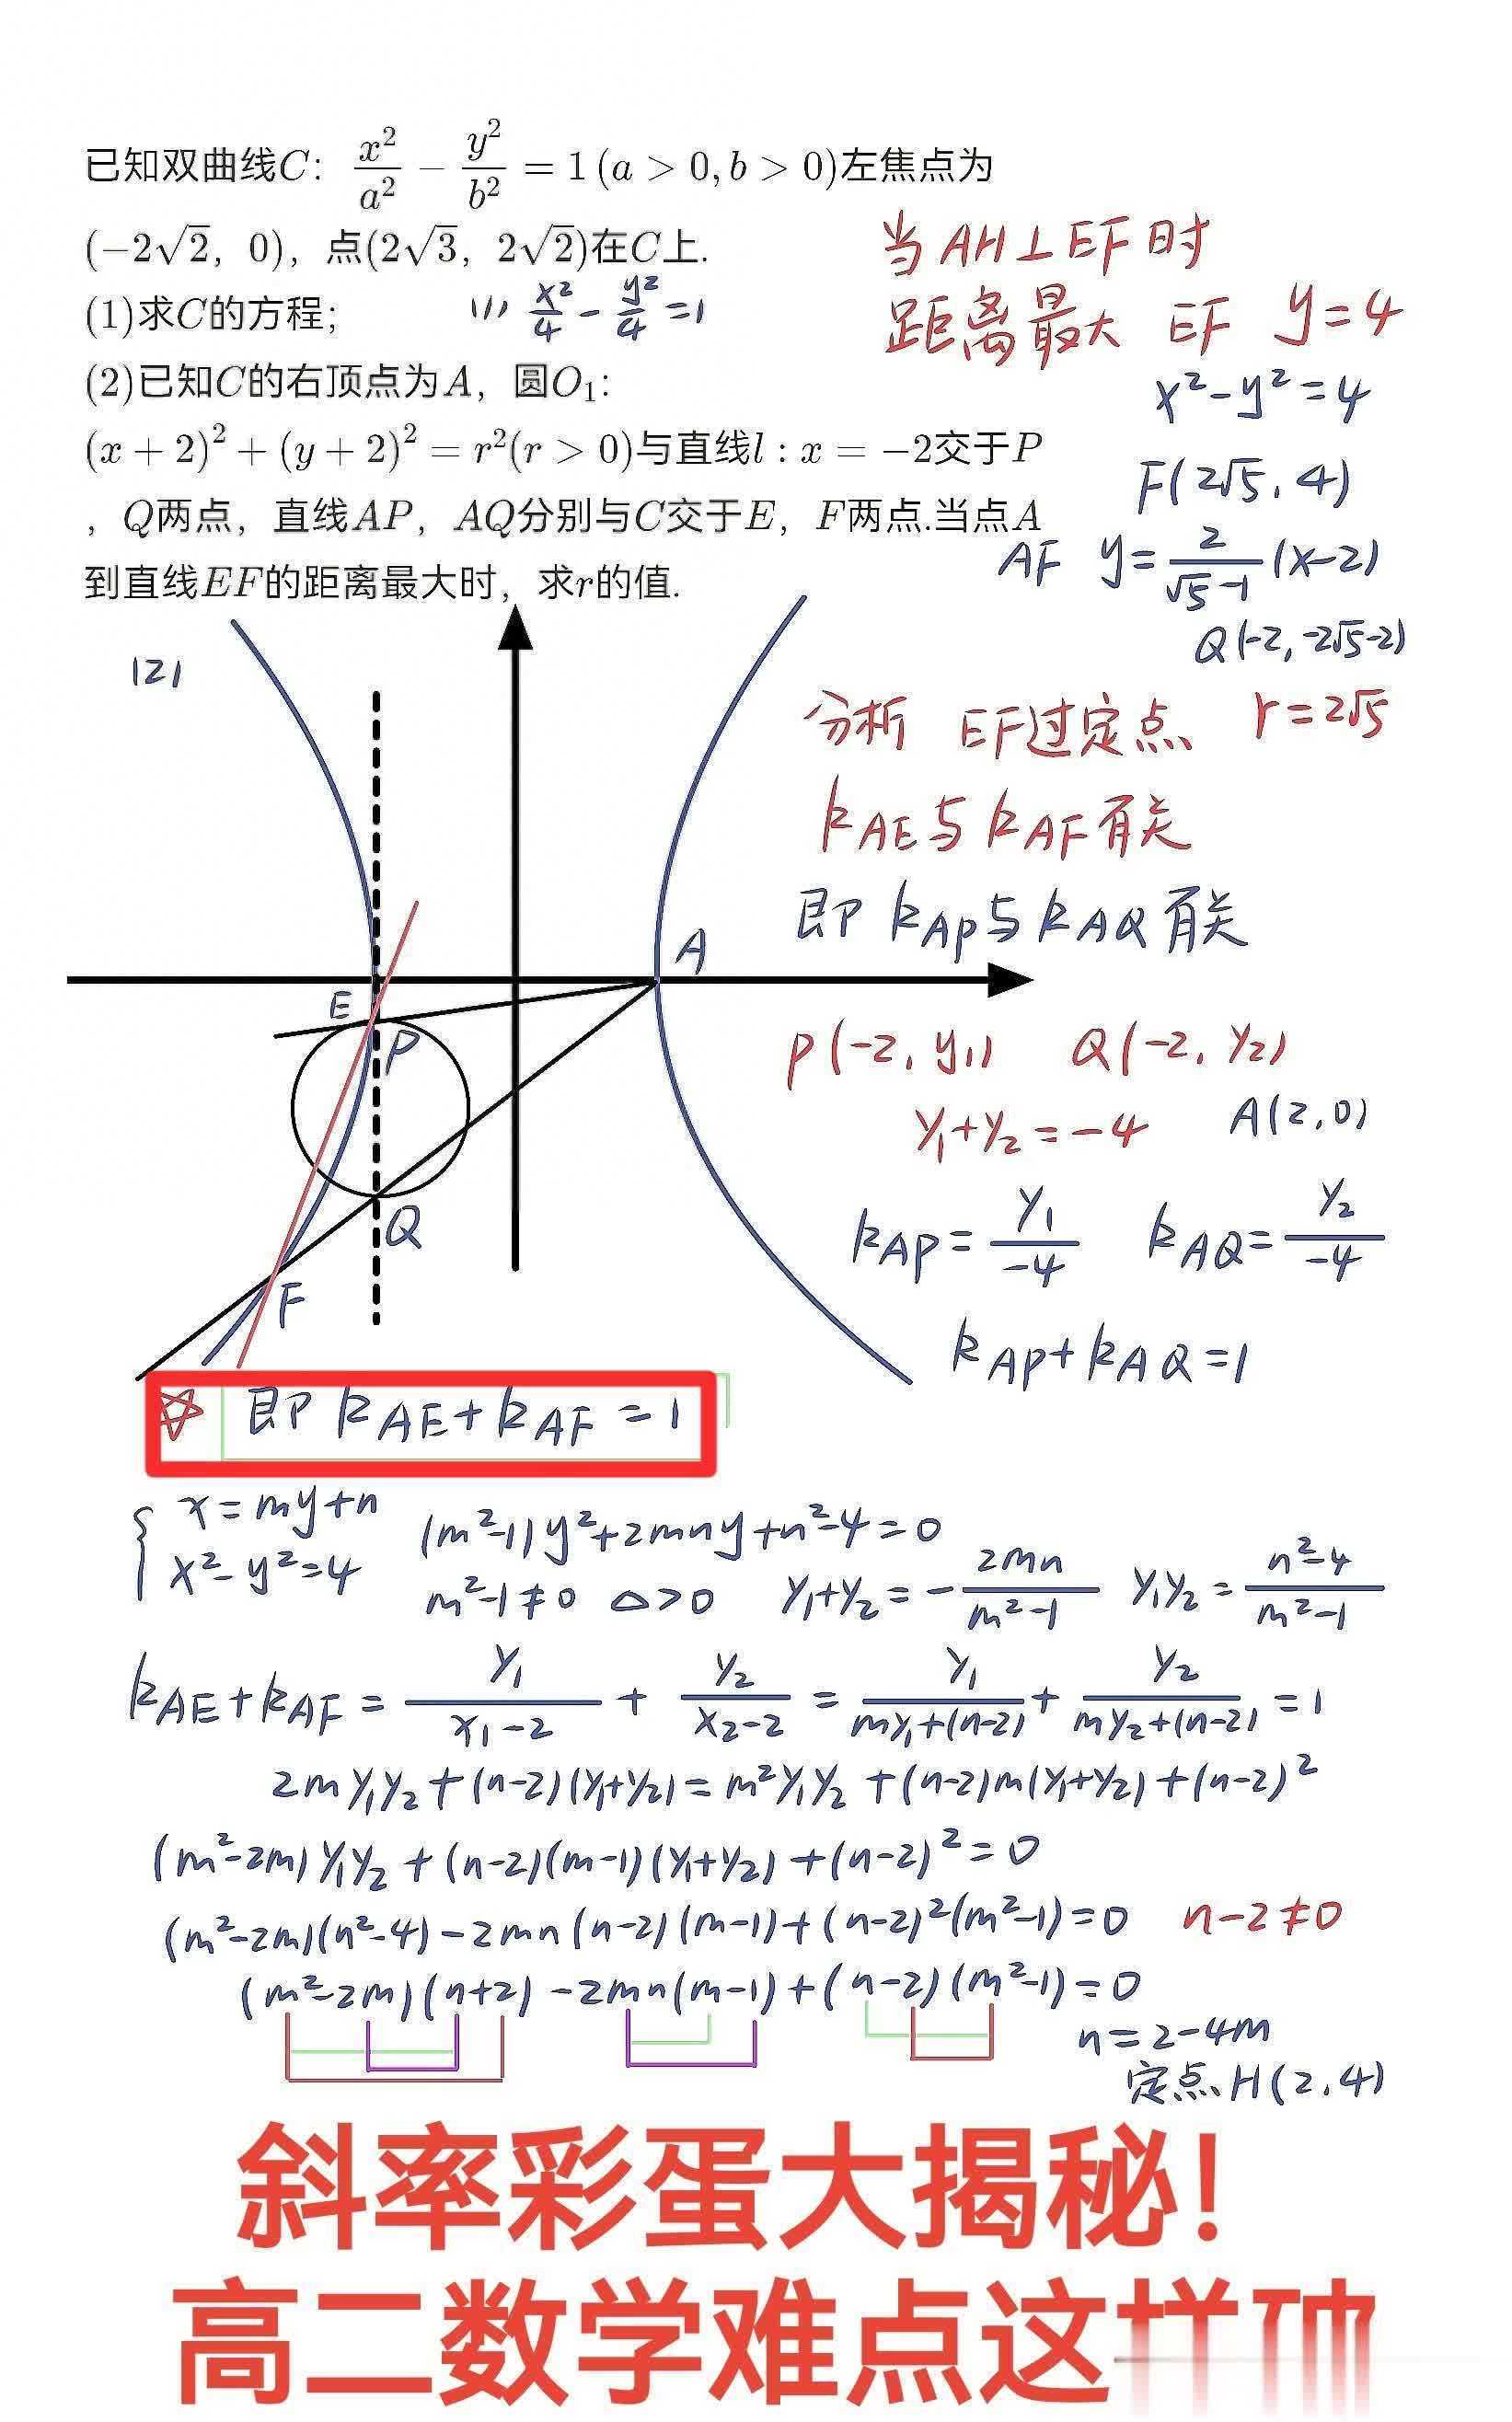 已知双曲线C: x²/a² − y²/b² = 1 (a > 0, b > 0)左焦点为
(−2√2, 0), 点(2√3, 2√2)在C上.
(1)求C的方程;
(1) x²/4 − y²/4 = 1
(2)已知C的右顶点为A, 圆O₁:
(x + 2)² + (y + 2)² = r²(r > 0)与直线l : x = −2交于P
, Q两点, 直线AP, AQ分别与C交于E, F两点.当点A
到直线EF的距离最大时, 求r的值.
当AH⊥EF时
距离最大 EF y=4
x²−y²=4
F(2√5, 4)
AF y=2/(√5−1) (x−2)
Q(−2, −2√5−2)
(2)
分析 EF过定点 r=2√5
kAE与kAF有关
即 kAP与kAQ有关
A
E
P
Q
F
P(−2, y₁) Q(−2, y₂)
y₁+y₂=−4 A(2,0)
kAP=y₁/−4 kAQ=y₂/−4
kAP+kAQ=1
☆ 即 kAE+kAF=1
{ x=my+n
x²−y²=4
(m²−1)y²+2mny+n²−4=0
m²−1≠0 △>0 y₁+y₂=−2mn/(m²−1) y₁y₂=(n²−4)/(m²−1)
kAE+kAF=y₁/(x₁−2) + y₂/(x₂−2) = y₁/(my₁+(n−2)) + y₂/(my₂+(n−2)) =1
2my₁y₂+(n−2)(y₁+y₂)=m²y₁y₂+(n−2)m(y₁+y₂)+(n−2)²
(m²−2m)y₁y₂+(n−2)(m−1)(y₁+y₂)+(n−2)²=0
(m²−2m)(n²−4)−2mn(n−2)(m−1)+(n−2)²(m²−1)=0 n−2≠0
(m²−2m)(n+2)−2mn(m−1)+(n−2)(m²−1)=0
n=2−4m
定点H(2,4)
斜率彩蛋大揭秘!
高二数学难点这样